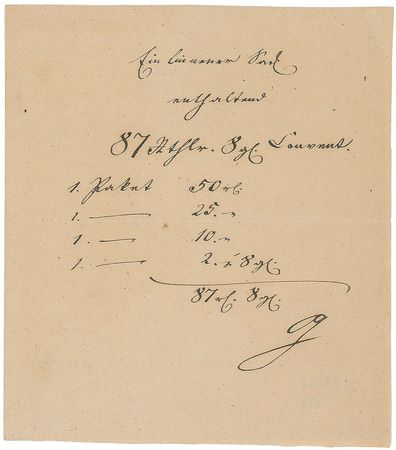 Ein linnener Sack
enthaltend
87 Rthlr. 8 gl. Convent.
1. Paket 50 rl.
1. — 25. "
1. — 10. "
1. — 2. " 8 gl.
87 rl. 8 gl.
G